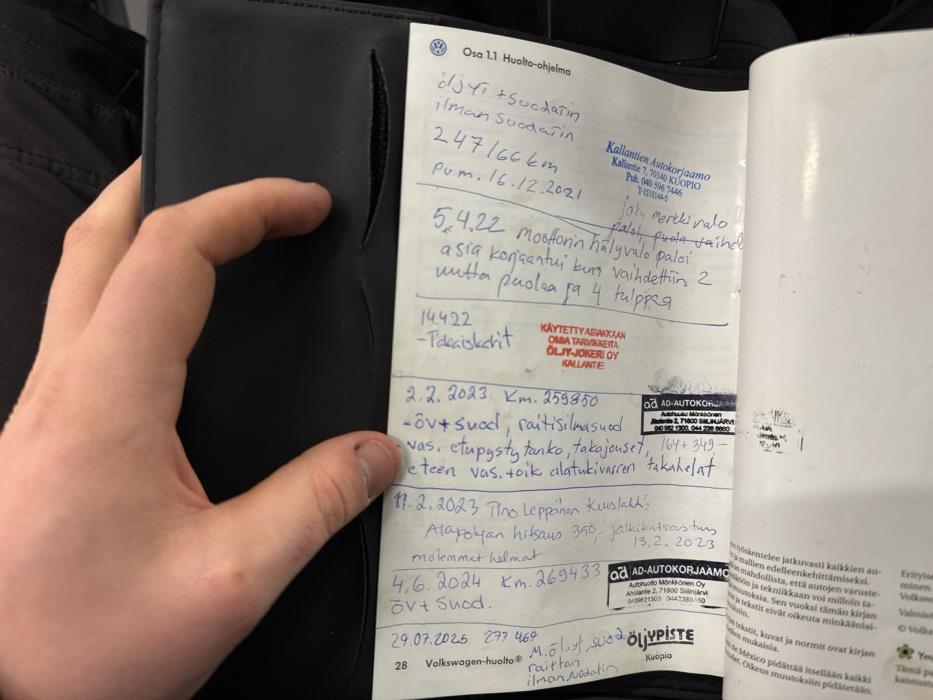 Osa 1.1 Huolto-ohjelma
öljyt + suodatin
ilmansuodatin
247166 km
pvm. 16.12.2021
Kallantien Autokorjaamo
Kallantie 7, 70340 KUOPIO
Puh. 040 596 7446
joku merkkivalo
paloi puola vaihd
5.4.22 moottorin hälyvalo paloi
asia korjaantui kun vaihdettiin 2
uutta puolaa ja 4 tulppaa
14.4.22
KÄYTETTY ASIAKKAAN
OMIA TARVIKKEITA
ÖLJY-JOKERI OY
KALLANTIE
2.2.2023 Km. 259850
ad AD-AUTOKORJAAMO
Autohuolto Mönkkönen
Aholantie 2, 71800 SIILINJÄRVI
-öv+suod, raitisilmasuod
vas. etupystytanko, takajouset, 164+349-
eteen vas.+oik alatukivarren takahelat
Tino Leppänen Kuuslahti
Alapohjan hitsaus 350,- jälkikatsastus
13.2.2023
molemmat helmat
4.6.2024 Km. 269433
öv+ suod.
ad AD-AUTOKORJAAMO
Autohuolto Mönkkönen Oy
Aholantie 2, 71800 Siilinjärvi
29.07.2025 277 469
M.öljyt, suod
raittiin
ilmansuodatin
ÖLJYPISTE
Kuopio
28 Volkswagen-huolto®
työskentelee jatkuvasti kaikkien au-
ja mallien edelleenkehittämiseksi.
mahdollista, että autojen varuste-
ja tekniikkaan voi milloin ta-
muutoksia. Sen vuoksi tämän kirjan
ja tekstit eivät oikeuta minkäänlai-
tekstit, kuvat ja normit ovat kirjan
mukaisia.
de México pidättää itsellään kaikki
Oikeus muutoksiin pidätetään.
minen
Volkswa
© Volks